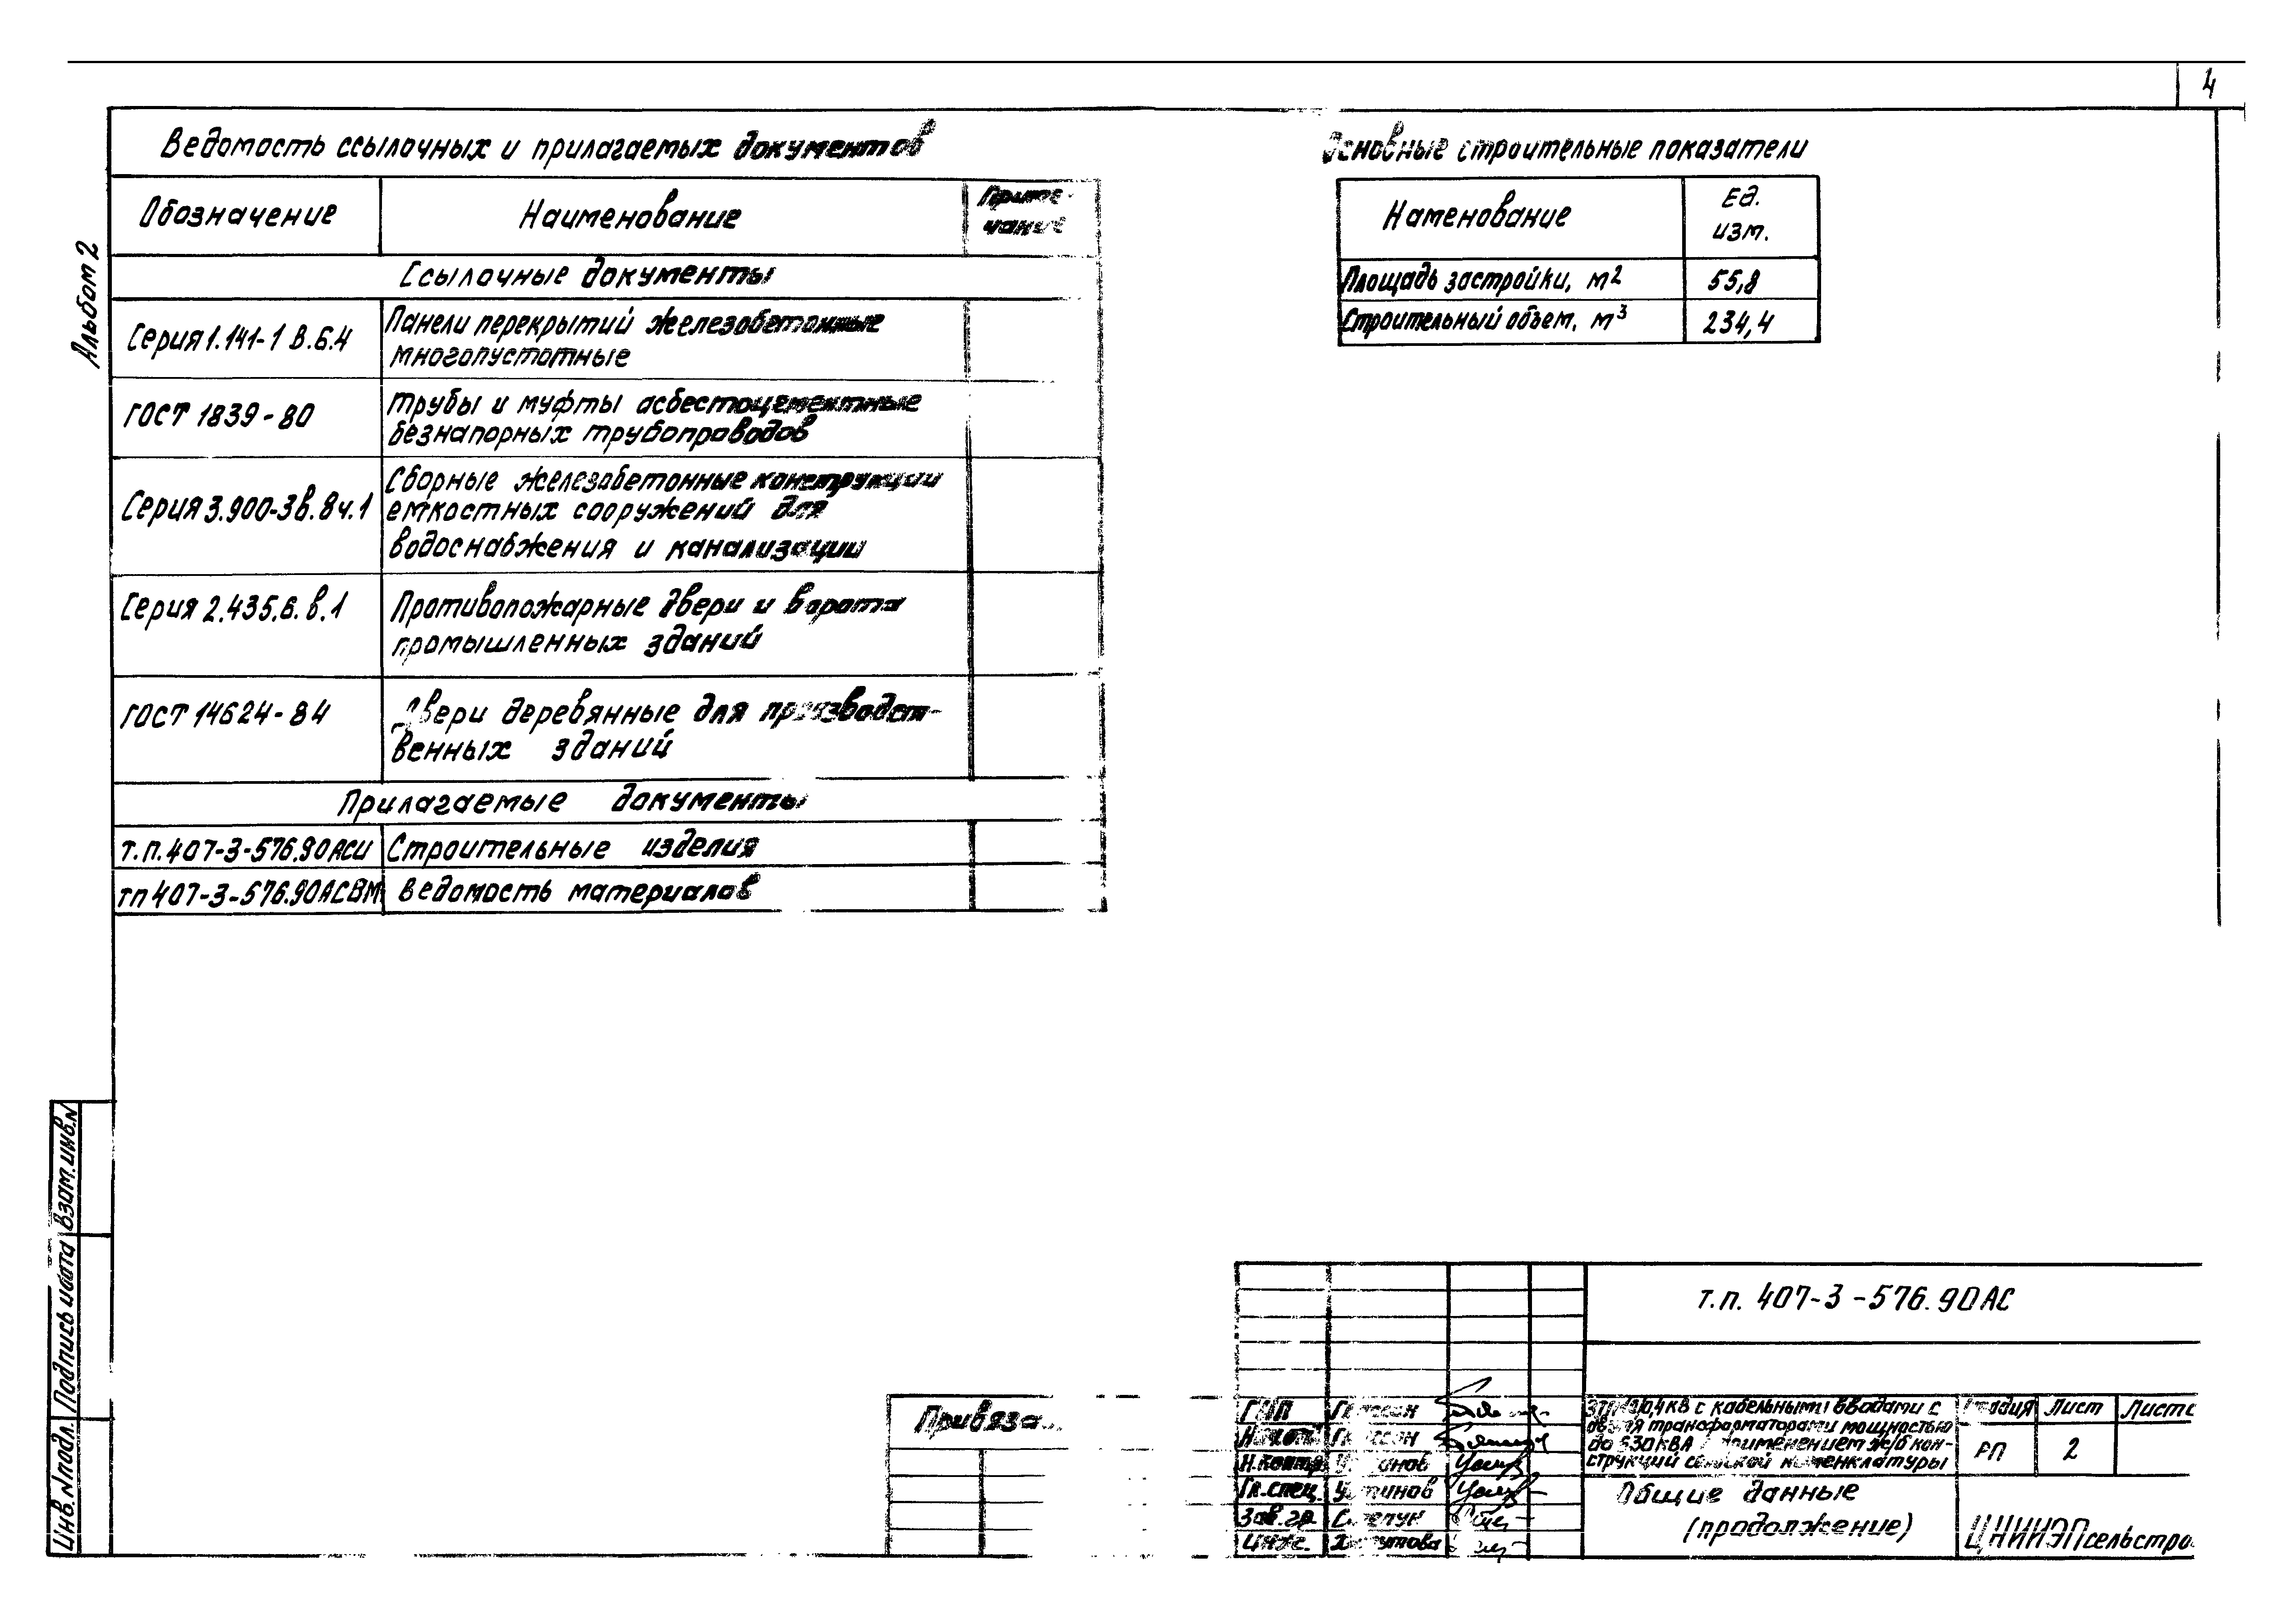 4
Альбом 2
Ведомость ссылочных и прилагаемых документов
Обозначение
Наименование
Приме-
чание
Ссылочные документы
Серия 1.141-1 В.6.4
Панели перекрытий железобетонные
многопустотные
ГОСТ 1839-80
трубы и муфты асбестоцементные
безнапорных трубопроводов
Серия 3.900-3в.8ч.1
Сборные железобетонные конструкции
емкостных сооружений для
водоснабжения и канализации
Серия 2.435.6.в.1
Противопожарные двери и ворота
промышленных зданий
ГОСТ 14624-84
Двери деревянные для производст-
венных зданий
Прилагаемые документы
т.п.407-3-576.90АСИ
Строительные изделия
тп407-3-576.90АСВМ
Ведомость материалов
Основные строительные показатели
Наменование
Ед.
изм.
Площадь застройки, м2
55,8
Строительный объем, м3
234,4
Взам.инв.N
Подпись и дата
Инв. N подл.
Привяза
т.п. 407-3-576.90АС
ГИП
Н.контр.
Гл.спец.
Устинов
Зав.гр.
Инж.
0,4кВ с кабельными вводами с
двумя трансформаторами мощностью
до 630кВА с применением ж/б кон-
струкций сельской номенклатуры
Стадия
Лист
Листо
РП
2
Общие данные
(продолжение)
ЦНИИЭПсельстро